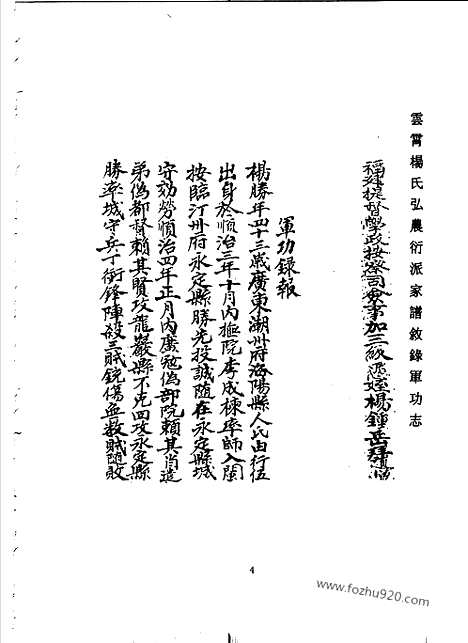 雲霄楊氏弘農衍派家譜敘錄軍功志
福建提督學政按察司僉事加三級愚姪楊鍾岳拜
軍功錄報
楊勝年四十三歲廣東潮州府洛陽縣人氏由行伍
出身於順治三年十月內撫院李成棟率師入閩
按臨汀州府永定縣勝先投誠隨在永定縣城
守効勞順治四年正月內廣冦偽部院賴其肖造
弟偽都督賴其賢攻龍巖縣不克回攻永定縣
勝率城守兵丁衝鋒陣殺三賊銃傷血救賊隨敗
4
www.fozhu920.com